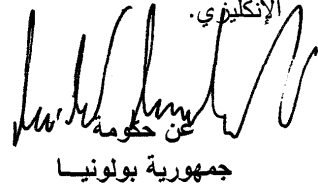 الإنكليزي.
عن حكومة
جمهورية بولونيـــا